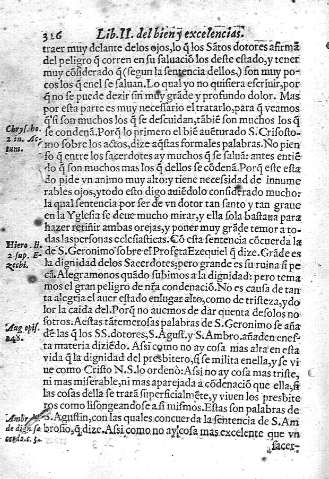 316 Lib. II. del bien y excelencias.
traer muy delante de los ojos, lo q̃ los Sãtos dotores afirmã
del peligro q̃ corren en su saluaciõ los deste estado, y tener
muy cõsiderado q̃ (segun la sentencia dellos,) son muy po-
cos los q̃ enel se saluan. Lo qual yo no quisiera escriuir, por
q̃ no se puede dezir sin muy grãde y profundo dolor. Mas
por esta parte es muy necessario el tratarlo, para q̃ veamos
q̃ si son muchos los q̃ se descuidan, tãbiẽ son muchos los q̃
se condenã. Porq̃ lo primero el biẽ auẽturado S. Crisosto-
mo sobre los actos, dize aq̃stas formales palabras. No pien-
so q̃ entre los sacerdotes ay muchos q̃ se saluã: antes entiẽ-
do q̃ son muchos mas los q̃ dellos se cõdenã. Porq̃ este esta
do pide vn animo muy alto y tiene necessidad de innume
rables ojos, y todo esto digo auiẽdolo considerado mucho:
la qual dignidad por ser de vn dotor tan santo y tan graue
en la Yglesia se deue mucho mirar, y ella sola bastana para
hazer retiñir ambas orejas, y poner muy grãde temor a to-
das las personas eclesiasticas. Cõ esta sentencia cõcuerda la
de S. Geronimo sobre el Profeta Ezequiel q̃ dize. Grãde es
la dignidad delos Sacerdotes, pero grande es su ruina si pe
cã. Alegramonos quãdo subimos a la dignidad: pero tema
mos el gran peligro de nr̃a condenaciõ. No es causa de tan
ta alegria el auer estado en lugar alto, como de tristeza, y do
lor la caida del. Porq̃ no auemos de dar quenta de solos no
sotros. A estas tã temerosas palabras de S. Geronimo se aña
dẽ las q̃ los SS. dotores, S. Agust. y S. Ambro. añaden enes-
ta materia diziẽdo. Assi como no ay cosa mas alta en esta
vida q̃ la dignidad del presbitero, q̃ se milita en ella, y se vi
ue como Cristo N. S. lo ordenò: Assi no ay cosa mas triste,
ni mas miserable, ni mas aparejada a cõdenaciõ que ella, si
las cosas della se tratã superficialmẽte, y viuen los presbite
ros como lisongeandose a si mismos. Estas son palabras de
S. Agustin, con las quales concuerda la sentencia de S. Am
brosio, q̃ dize. Assi como no ay cosa mas excelente que vn
sacer-
Chrys. ho.
2 in. Ac-
tum.
Hiero. li.
2 sup. E-
zechi.
Aug epis.
148.
Ambr.
de dign. sa
cerdo. c. 3.